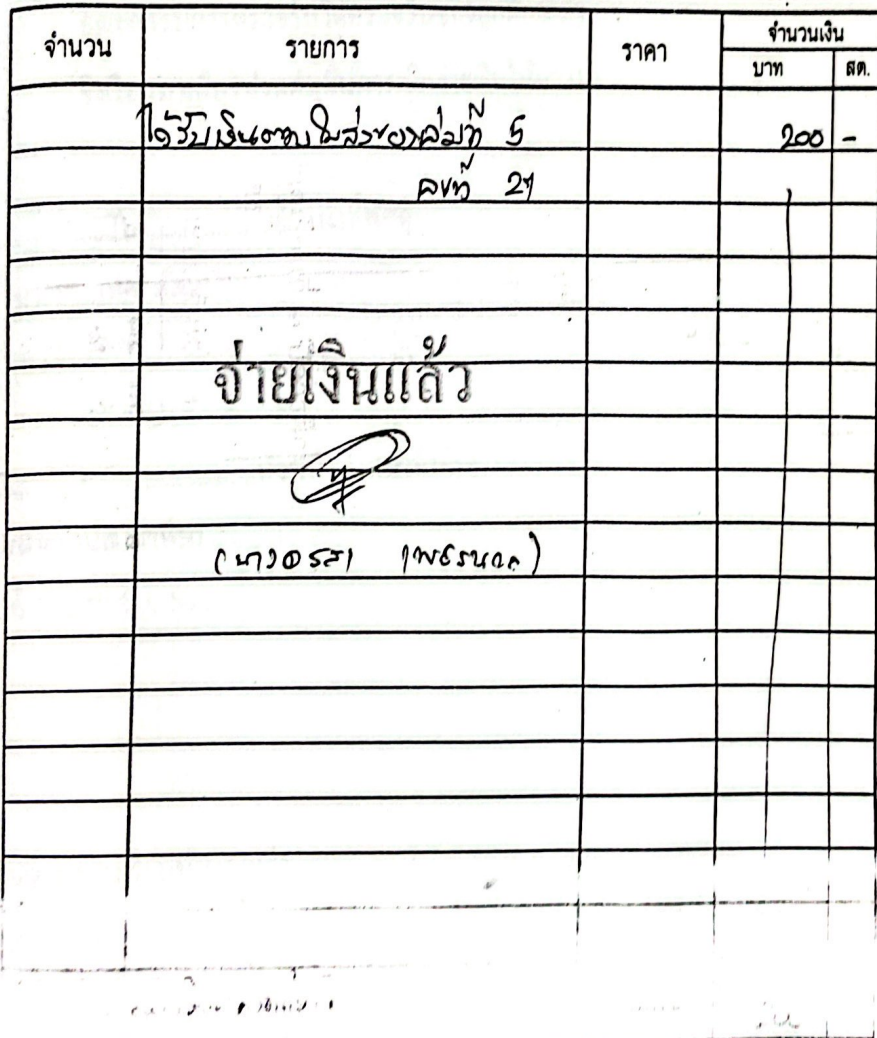 จำนวน รายการ ราคา จำนวนเงิน
บาท สต.
ได้รับเงินตามใบส่งของเล่มที่ 5 200 -
เลขที่ 21
จ่ายเงินแล้ว
(นางอรสา